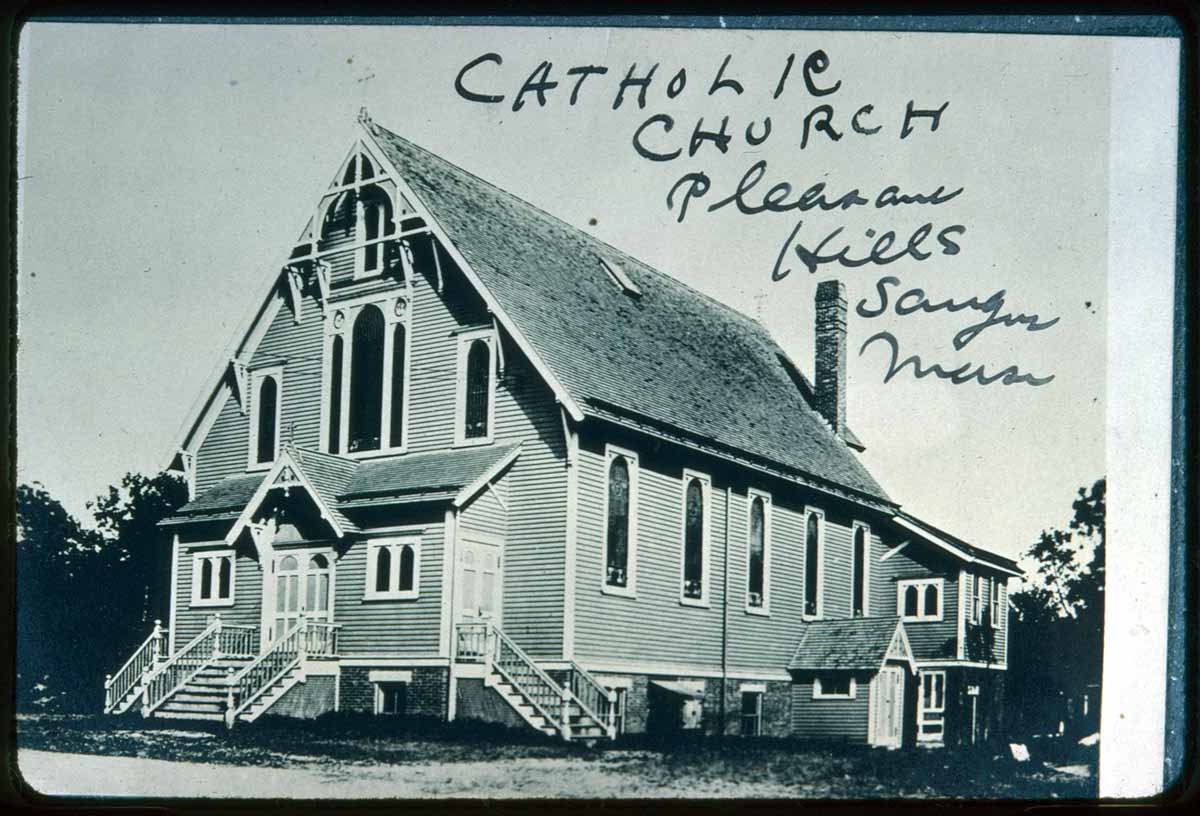 CATHOLIC
CHURCH
Pleasant
Hills
Saugus
Mass